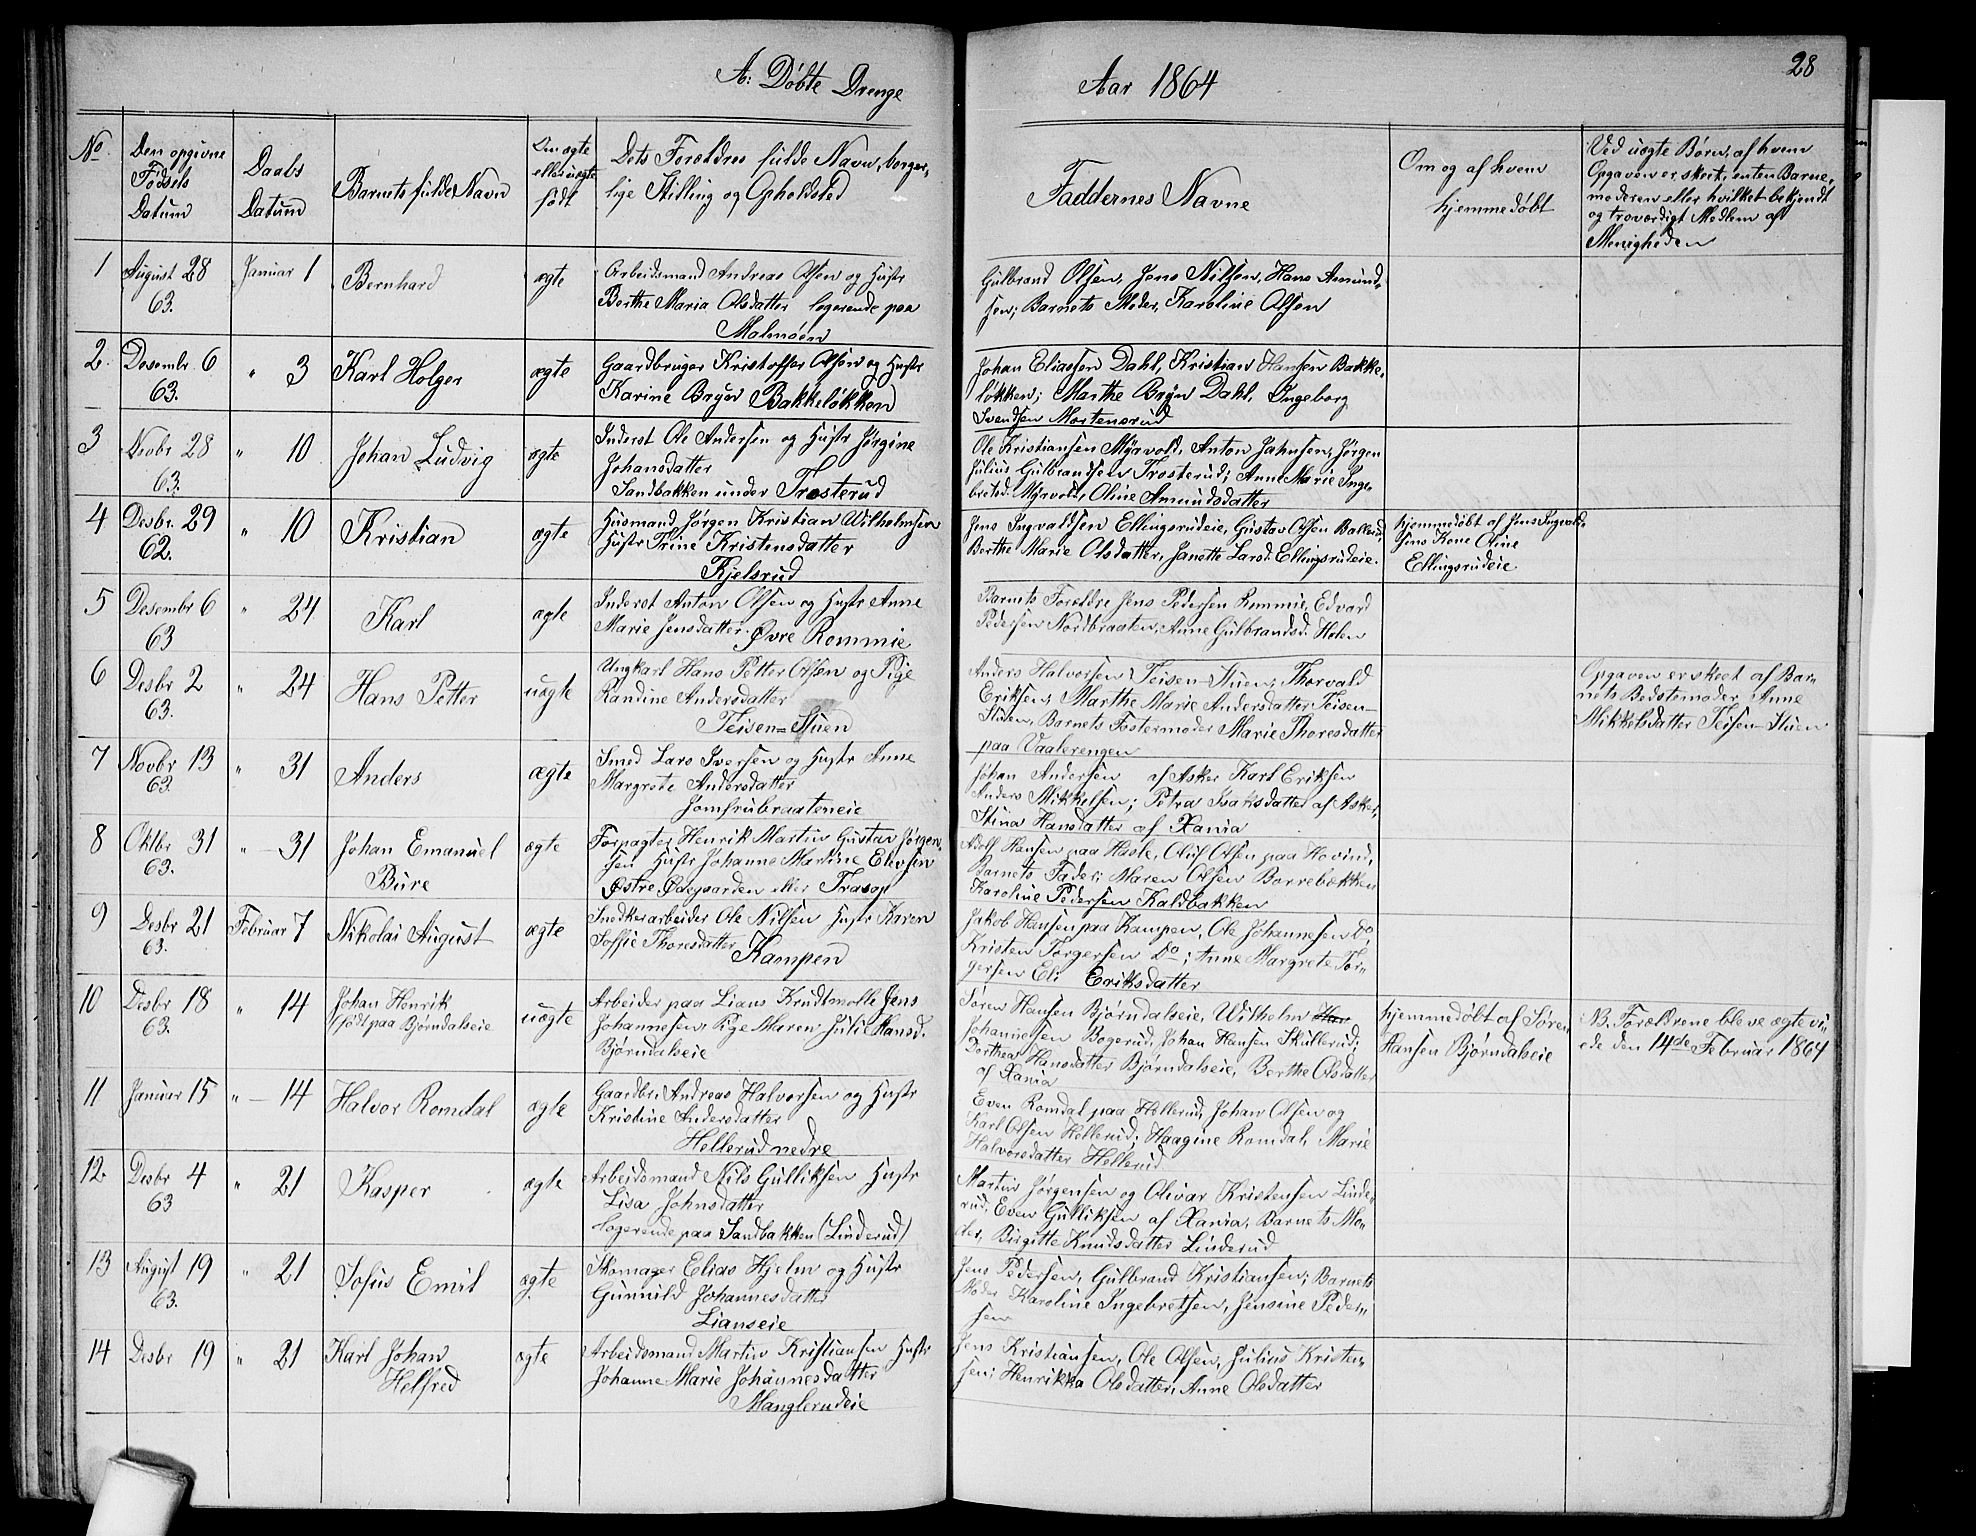 A: Døbte Drenge
Aar 1864
28
No
Den opgivne
Fødsels
Datum
Daabs
Datum
Barnets fulde Navn
Om ægte
eller uægte
født
Dets Forældres fulde Navn, borger-
lige Stilling og Opholdsted
Faddernes Navne
Om og af hvem
hjemmedøbt
Ved uægte Børn, af hvem
Opgaven er skeet, enten Barne-
moderen eller hvilket bekjendt
og troværdigt Medlem af
Menigheden
1
August 28
63.
Januar 1
Bernhard
ægte
Arbeidsmand Andreas Olsen og Hustr
Berthe Maria Olsdatter logerende paa
Malmøen
Gulbrand Olsen, Jens Nilsen, Hans Amund-
sen; Barnets Moder, Karoline Olsen
2.
Desembr 6
63.
" 3
Karl Holger
ægte
Gaardbruger Kristoffer Olsen og Hustr
Karine Bryn Bakkeløkken
Johan Eliassen Dahl, Kristian Hansen Bakke-
løkken; Marthe Bryn Dahl, Ingeborg
Svendsen Mortensrud
3
Novbr 28
63.
" 10
Johan Ludvig
ægte
Inderst Ole Andersen og Hustr Jørgine
Johansdatter
Sandbakken under Trosterud
Ole Kristiansen Myrvold, Anton Jahnsen, Jørgen
Julius Gulbrandsen Trosterud; Anne Marie Inge-
bretsd. Myrvold, Oline Amundsdatter
4
Desbr. 29
62.
" 10
Kristian
ægte
Husmand Jørgen Kristian Wilhelmsen
Hustr Trine Kristensdatter
Kjelsrud
Jens Ingvaldsen Ellingsrudeie, Gustav Olsen Ballerud,
Berthe Marie Olsdatter, Janette Larsd. Ellingsrudeie.
hjemmedøbt af Jens Ingvald-
sens Kone Oline
Ellingsrudeie
5
Desembr 6
63
" 24
Karl
ægte
Inderst Anton Olsen og Hustr Anne
Marie Jensdatter. Øvre Rommie
Barnets Forældre Jens Pedersen Rommie, Edvard
Pedersen Nordbraaten, Anne Gulbrandsd. Holen
6
Desbr 2
63.
" 24
Hans Petter
uægte
Ungkarl Hans Petter Olsen og Pige
Randine Andersdatter
Teisen=Stuen
Anders Halvorsen Teisen-Stuen, Thorvald
Eriksen, Marthe Marie Andersdatter Teisen-
Stuen, Barnets Fostermoder Marie Thoresdatter
paa Vaalerengen
Opgaven er skeet af Bar-
nets Bedstemoder, Anne
Mikkelsdatter Teisen-Stuen
7
Novbr 13
63.
" 31
Anders
ægte
Smed Lars Iversen og Hustr Anne
Margrete Andersdatter
Jomfrubraateneie
Johan Andersen af Asker Karl Eriksen
Anders Mikkelsen; Petra Isaksdatter af Asker,
Stina Hansdatter af Xania
8
Oktbr 31
63.
" 31
Johan Emanuel
Bure
ægte
Forpagter Henrik Martin Gustav Jørgen-
sen Hustr Johanne Martine Elevsen
Østre Ødegaarden eller Trasop
Adolf Hansen paa Hasle, Oluf Olsen paa Hovind,
Barnets Fader; Maren Olsen Borrebækken
Karoline Pedersen Kaldbakken
9
Desbr 21
63.
Februar 7
Nikolai August
ægte
Snedkerarbeider Ole Nilsen Hustr Karen
Soffie Thoresdatter
Kampen
Jakob Hansen paa Kampen, Ole Johannesen Do
Kristen Torgersen Do; Anne Margrete Tor-
gersen Eli Eriksdatter
10
Desbr 18
63.
" 14
Johan Henrik
født paa Bjørndalseie
uægte
Arbeider paa Lians Krudtmølle Jens
Johannesen, Pige Maren Julie Hansd.
Bjørndalseie
Søren Hansen Bjørndalseie, Wilhelm
Johannesen Bogerud, Johan Hansen Skullerud;
Dorthea Hansdatter Bjørndalseie, Berthe Olsdatter
af Xania
hjemmedøbt af Søren
Hansen Bjørndalseie
NB. Forældrene bleve ægtevi-
ede den 14de Februar 1864
11
Januar 15
" 14
Halvor Romdal
ægte
Gaardbr. Andreas Halvorsen og Hustr
Kristine Andersdatter
Hellerud nedre
Even Romdal paa Hellerud, Johan Olsen og
Karl Olsen Hellerud; Haagine Romdal, Marie
Halvorsdatter Hellerud.
12
Desbr 4
63
" 21
Kasper
ægte
Arbeidsmand Nils Gulliksen Hustr
Lisa Johnsdatter
logerende paa Sandbakken (Linderud)
Martin Jørgensen og Olivar Kristensen Linde-
rud, Even Gulliksen af Xania, Barnets Mo-
der, Birgitte Knudsdatter Linderud
13
August 19
63.
" 21
Sofus Emil
ægte
Skomager Elias Hjelm og Hustr
Gunnild Johannesdatter
Lianseie
Jens Pedersen, Gulbrand Kristiansen; Barnets
Moder Karoline Ingebretsen, Jensine Peder-
sen
14
Desbr 19
" 21
Karl Johan
Helfred
ægte
Arbeidsmand Martin Kristiansen Hustr
Johanne Marie Johannesdatter
Manglerudeie
Jens Kristiansen, Ole Olsen, Julius Kristen-
sen; Henrikka Olsdatter, Anne Olsdatter